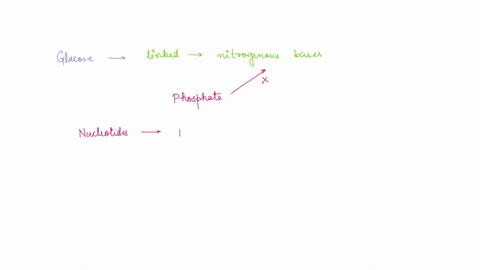 Glucose → linked → nitrogenous bases
x
Phosphate
Nucleotides → |